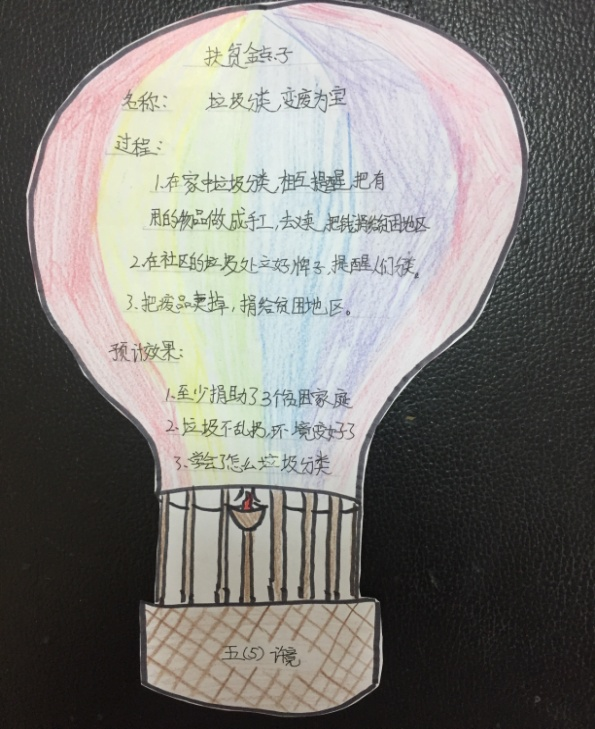 扶贫金点子
名称： 垃圾分类，变废为宝
过程：
1.在家中垃圾分类，相互提醒，把有
用的物品做成手工，去卖，把钱捐给贫困地区
2.在社区的垃圾处立好牌子，提醒人们分类。
3.把废品卖掉，捐给贫困地区。
预计效果：
1.至少捐助了3个贫困家庭
2.垃圾不乱扔，环境变好了
3.学会了怎么垃圾分类
五(5) 许